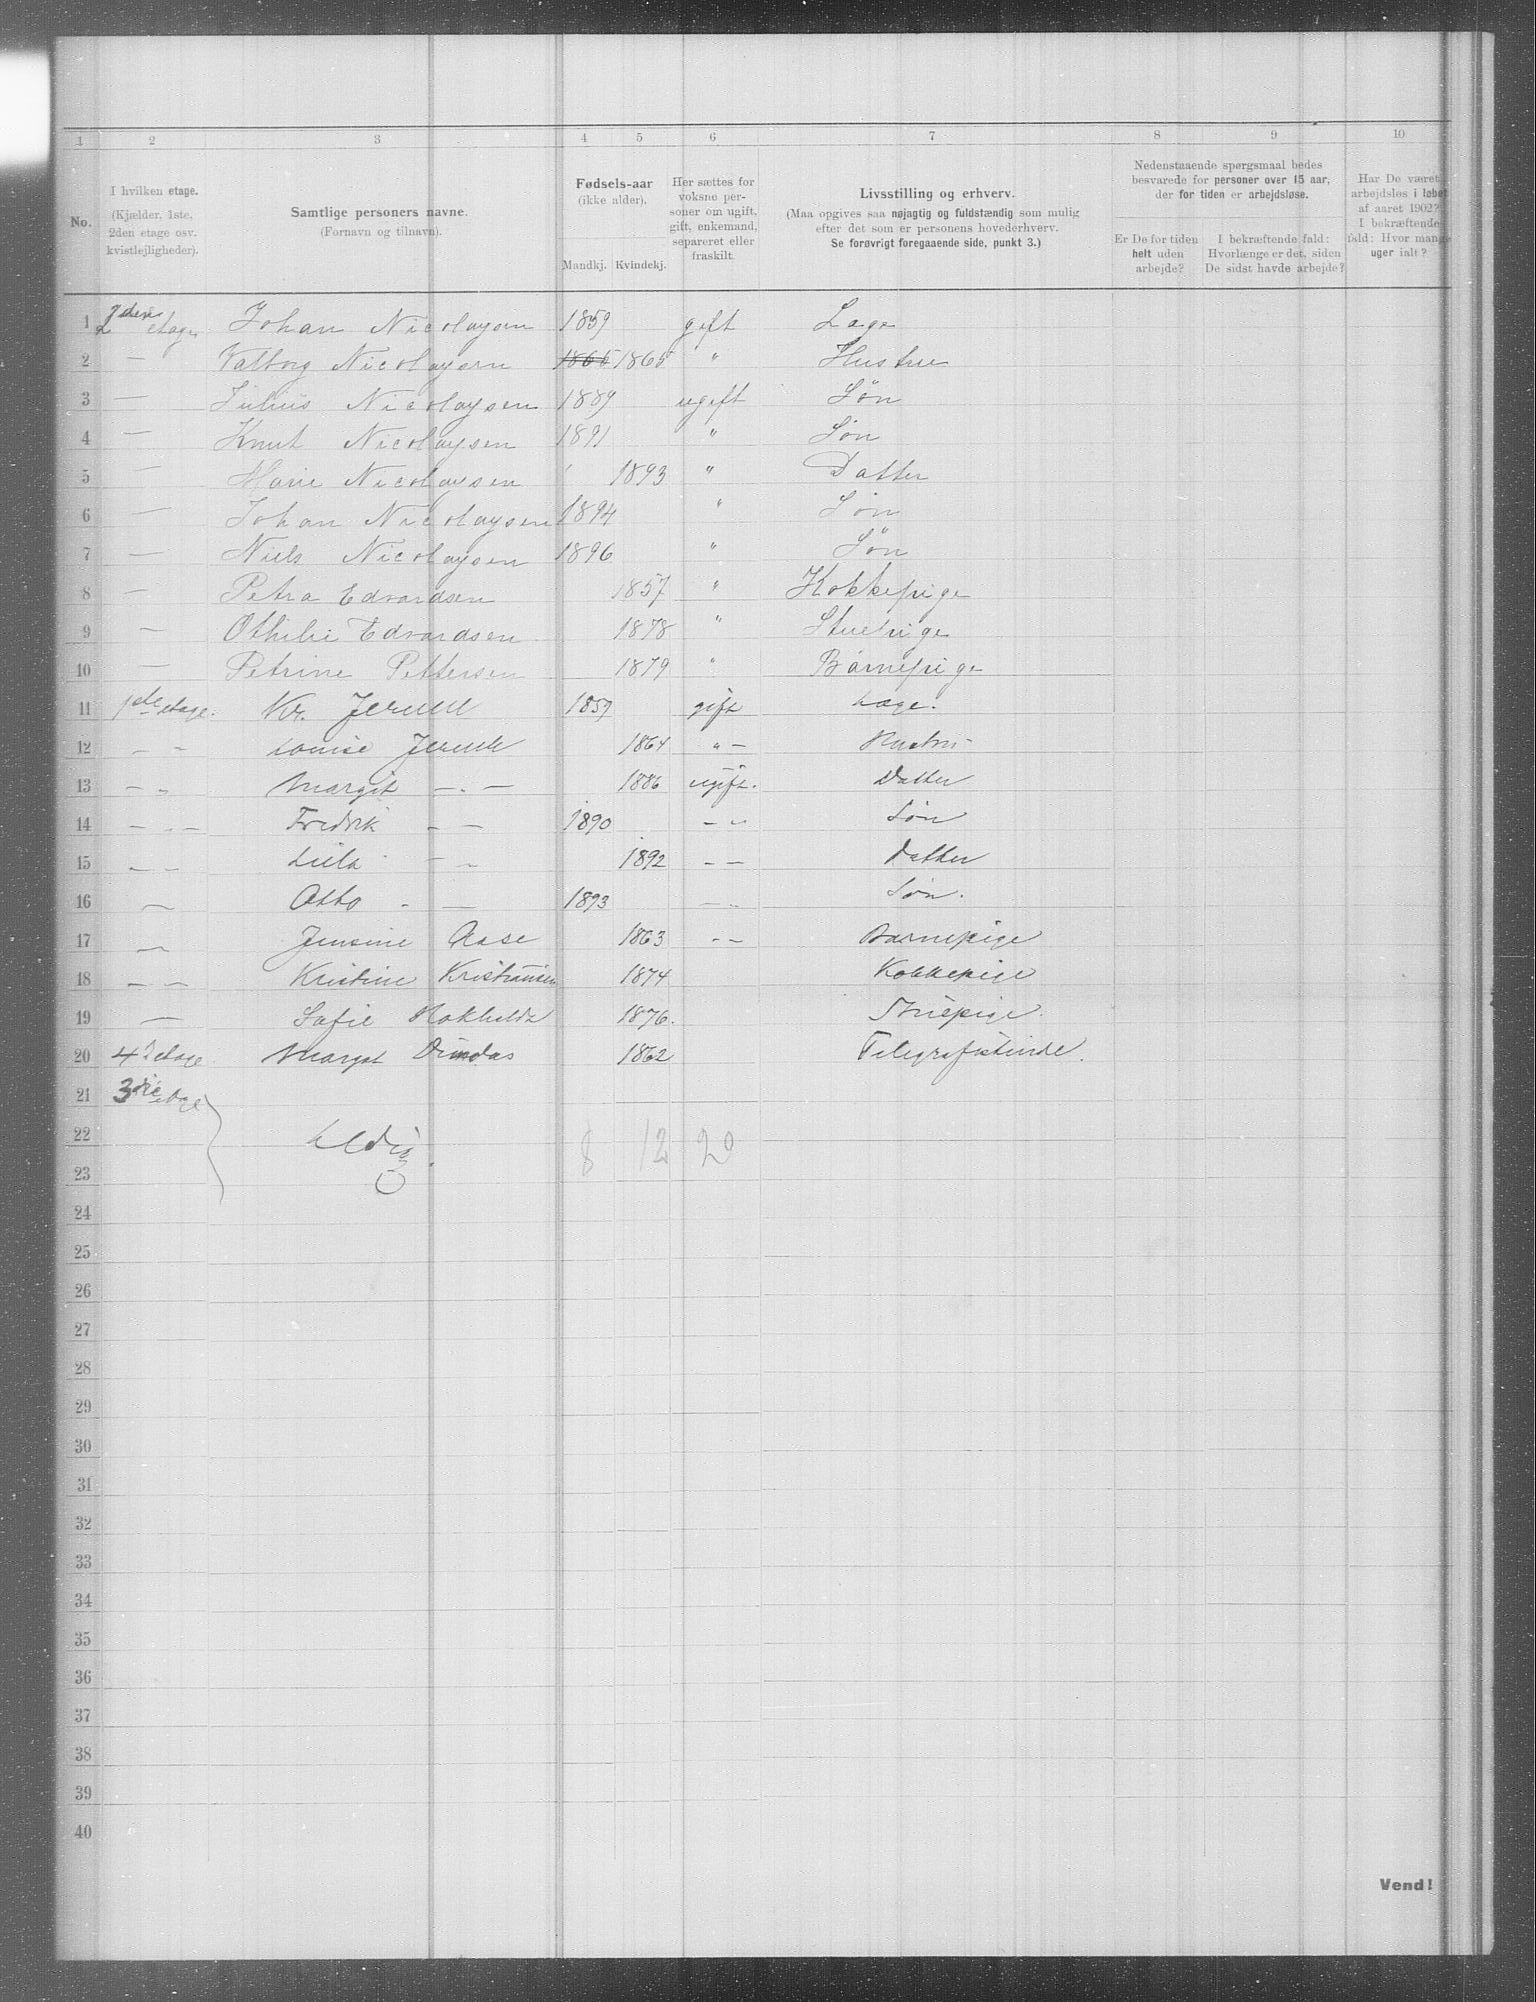 1 2 3 4 5 6 7 8 9 10
No.
I hvilken etage.
(Kjælder, 1ste,
2den etage osv.
kvistlejligheder).
Samtlige personers navne.
(Fornavn og tilnavn).
Fødsels-aar
(ikke alder).
Mandkj. Kvindekj.
Her sættes for
voksne per-
soner om ugift,
gift, enkemand,
separeret eller
fraskilt.
Livsstilling og erhverv.
(Maa opgives saa nøjagtig og fuldstændig som mulig
efter det som er personens hovederhverv.
Se forøvrigt foregaaende side, punkt 3.)
Nedenstaaende spørgsmaal bedes
besvarede for personer over 15 aar,
der for tiden er arbejdsløse.
Er De for tiden
helt uden
arbejde?
I bekræftende fald:
Hvorlænge er det, siden
De sidst havde arbejde?
Har De været
arbejdsløs i løbet
af aaret 1902?
I bekræftende
fald: Hvor mange
uger ialt?
1 2den etage Johan Nicolaysen 1859 gift Læge
2 — Valborg Nicolaysen 1865 1865 " Hustru
3 — Julius Nicolaysen 1889 ugift Søn
4 — Knut Nicolaysen 1891 " Søn
5 — Marie Nicolaysen 1893 " Datter
6 — Johan Nicolaysen 1894 " Søn
7 — Niels Nicolaysen 1896 " Søn
8 — Petra Edvardsen 1857 " Kokkepige
9 — Othilie Edvardsen 1878 " Stuepige
10 — Petrine Pettersen 1879 " Barnepige
11 1ste etage. Kr. 1859 gift Læge.
12 — — Louise 1864 " — Hustru
13 — " Margit — " — 1886 ugift. Datter
14 — " — Fredrik — — 1890 — " Søn
15 — — — " 1892 — — Datter
16 — Otto - — 1893 — " Søn.
17 — Jensine Aase 1863 — — Barnepige
18 — — Kristine Kristiansen 1874 Kokkepige
19 — Sofie 1876. Stuepige.
20 4d etage Margit Dundas 1862 Telegrafistinde.
21 3die etage
22 Ledig. 8 12 20
23
24
25
26
27
28
29
30
31
32
33
34
35
36
37
38
39
40
Vend!